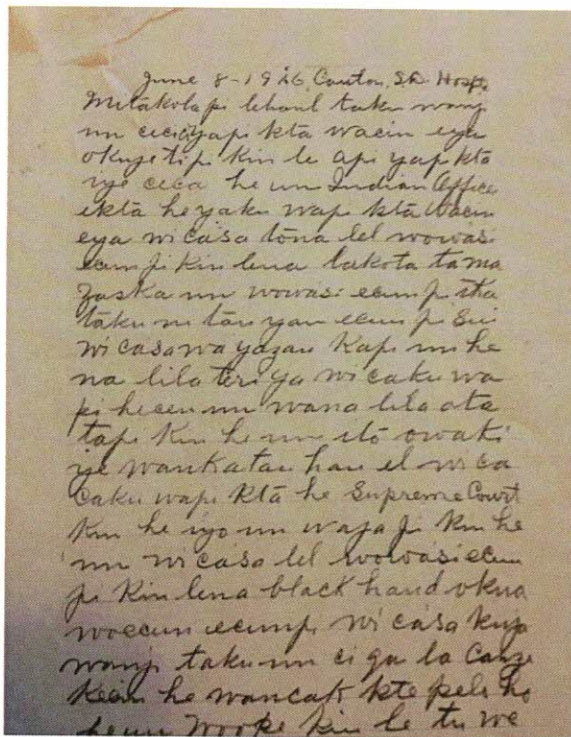 June 8-1926, Canton, S.D. Hosp.
Mitakolapi lehanl taku wanji
un ciciyapi kta wacin eya
okuje tipi kin le api yapi kta
iye ceca he un Indian Office
ekta he yaku wapi kta wacin
eya wicasa tona lel wowasi
ecunpi kin lena lakota tama
zaska un wowasi ecunpi
taku ni tan yan ecunpi Sni
wicasa wa yazan Kapi un he
na lila teri ya wicaku wa
pi hecen un wana lila ota
tapi kin he un ito owaki
iye wankatan han el wica
caku wapi kta he Supreme Court
kin he iyo un pi kin he
un wicasa lel wowasi ecun
pi kin lena black hand okna
woecun ecunpi wicasa kuja
wanji taku un ci qa la Canze
he wancak kte pelo ho
hecun Woope kin le tu we